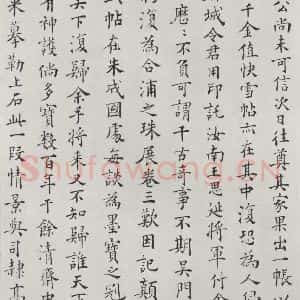 公尚未可信次日往奠其家果出一帳
千金值快雪帖亦在其中復恐為人得
城令君用卬託汝南王思延將軍行金
應〻不負可謂千古奇事不期吳門
復為合浦之珠展卷三歎因記顛
帖在朱成國處每談為墨寶之冠
天下復歸余手將來又不知歸誰天下
有神護倘多寶數百年于余清齋中
來摹勒上石此一段情景與司隸高
Shufawang.CN